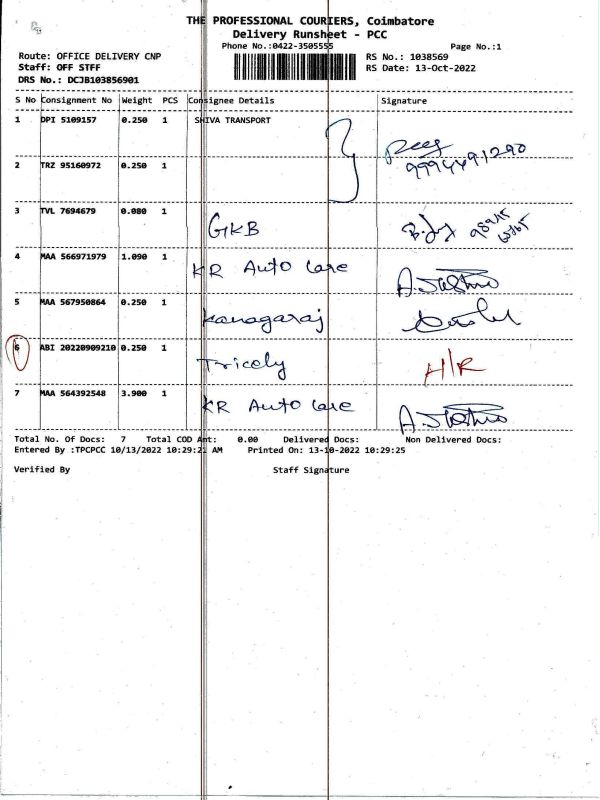 THE PROFESSIONAL COURIERS, Coimbatore
Delivery Runsheet - PCC
Phone No.:0422-3505555 Page No.:1
Route: OFFICE DELIVERY CNP RS No.: 1038569
Staff: OFF STFF RS Date: 13-Oct-2022
DRS No.: DCJB103856901
S No Consignment No Weight PCS Consignee Details Signature
1 DPI 5109157 0.250 1 SHIVA TRANSPORT
9994491290
2 TRZ 95160972 0.250 1
3 TVL 7694679 0.080 1 GKB
4 MAA 566971979 1.090 1 KR Auto Care
5 MAA 567950864 0.250 1 Kanagaraj
6 ABI 20220909210 0.250 1 Tricely H/R
7 MAA 564392548 3.900 1 KR Auto Care
Total No. Of Docs: 7 Total COD Amt: 0.00 Delivered Docs: Non Delivered Docs:
Entered By :TPCPCC 10/13/2022 10:29:21 AM Printed On: 13-10-2022 10:29:25
Verified By Staff Signature